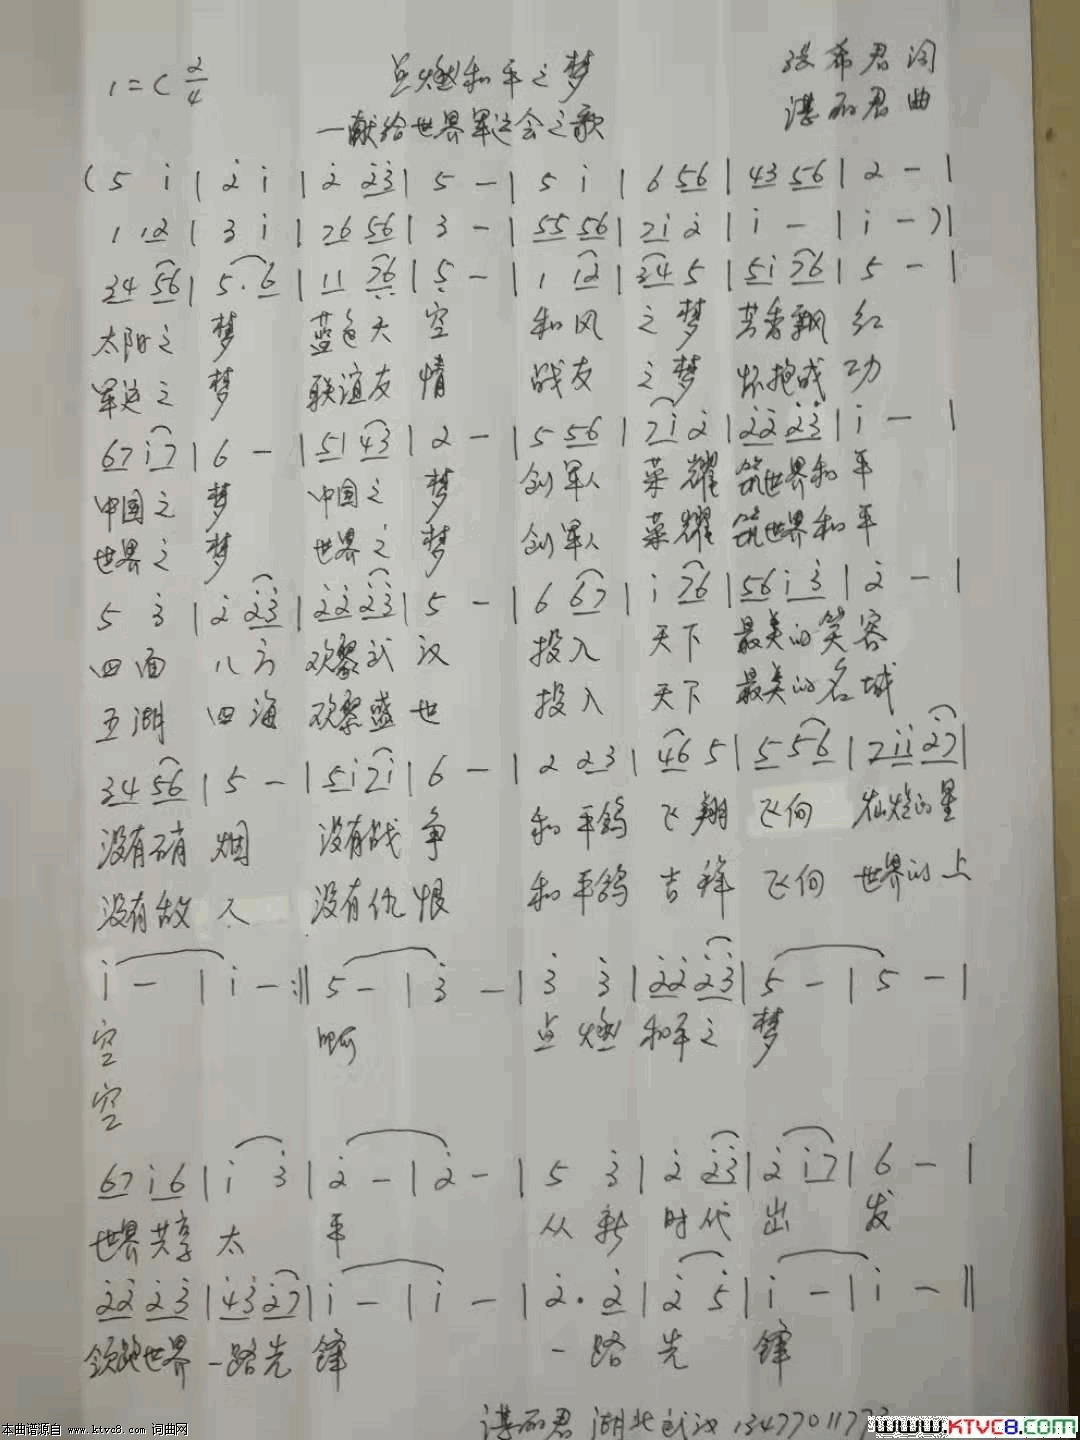 1=C 2/4
点燃和平之梦
张希君词
—献给世界军运会之歌
谌丽君曲
( 5 i | 2̇ i | 2̇ 2̇3̇ | 5 - | 5 i | 6 56 | 43 56 | 2 - |
1 12 | 3 i | 76 56 | 3 - | 55 56 | 7i 2̇ | i - | i - ) |
34 56 | 5·6 | 11 76 | 5 - | 1 12 | 34 5 | 5i 76 | 5 - |
太阳之 梦 蓝色天 空 和风 之 梦 芳香飘 红
军运之 梦 联谊友 情 战友 之 梦 怀抱成 功
67 i7 | 6 - | 51 43 | 2 - | 5 56 | 7i 2̇ | 2̇2̇ 2̇3̇ | i - |
中国之 梦 中国之 梦 创军人 荣 耀 筑世界和 平
世界之 梦 世界之 梦 创军人 荣 耀 筑世界和 平
5 3̇ | 2̇ 2̇3̇ | 2̇2̇ 2̇3̇ | 5 - | 6 67 | i 76 | 56 i 3̇ | 2̇ - |
四面 八方 欢聚武 汉 投入 天下 最美的笑容
五湖 四海 欢聚盛 世 投入 天下 最美的名城
34 56 | 5 - | 5i 7i | 6 - | 2 23 | 46 5 | 5 56 | 7ii 2̇7 |
没有硝 烟 没有战 争 和 平鸽 飞 翔 飞向 灿烂的星
没有敌 人 没有仇 恨 和 平鸽 吉 祥 飞向 世界的上
i - | i - :‖ 5 - | 3̇ - | 3̇ 3̇ | 2̇2̇ 2̇3̇ | 5 - | 5 - |
空 啊 点 燃 和平之 梦
空
67 i 6 | i 3̇ | 2̇ - | 2̇ - | 5 3̇ | 2̇ 2̇3̇ | 2̇ i7 | 6 - |
世界共享 太 平 从 新 时 代 出 发
2̇2̇ 2̇ 3̇ | 4̇3̇ 2̇7 | i - | i - | 2̇· 2̇ | 2̇ 5 | i - | i - ‖
领跑世界 一路先 锋 一 路 先 锋
谌丽君 湖北武汉
本曲谱源自 www.ktvc8.com 词曲网
www.KTVC8.com